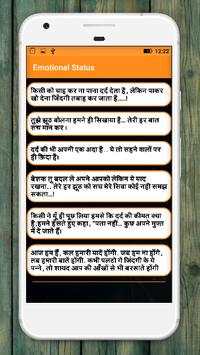 12:22
Emotional Status
किसी को चाह कर ना पाना दर्द देता हैं, लेकिन पाकर
खो देना जिंदगी तबाह कर जाता हैं....!
तुझे झूठ बोलना हमने ही सिखाया है... तेरी हर बात
सच मान कर।
दर्द की भी अपनी एक अदा है.. ये तो सहने वालों पर
ही फ़िदा है।
बेशक तू बदल ले अपने आपको लेकिन ये याद
रखना.. तेरे हर झूठ को सच मेरे सिवा कोई नही समझ
सकता...!
किसी ने यूँ ही पूछ लिया हमसे कि दर्द की कीमत क्या
है, हमने हँसते हुए कहा, "पता नही... कुछ अपने मुफ्त
में दे जाते हैं।
आज हम हैं, कल हमारी यादें होंगी. जब हम ना होंगे,
तब हमारी बातें होंगी. कभी पलटो गे जिंदगी के ये
पन्ने, तो शायद आप की आँखों से भी बरसाते होंगी